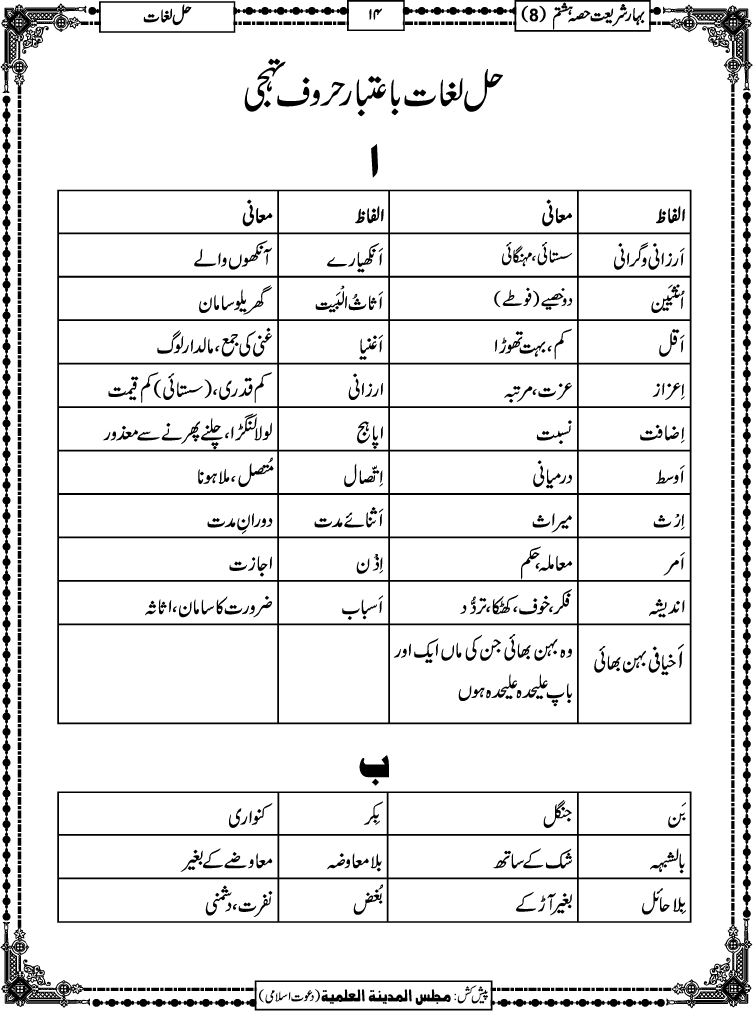 بہارشریعت حصہ ہشتم (8)
۱۴
حل لغات
حل لغات باعتبار حروف تہجی
ا
الفاظ معانی الفاظ معانی
اَرزانی وگرانی سستائی، مہنگائی اَنکھیارے آنکھوں والے
اُنثَیین دوخصیے (فوطے) اَثاثُ الْبَیت گھریلوسامان
اَقل کم، بہت تھوڑا اَغنیا غنی کی جمع، مالدار لوگ
اِعزاز عزت، مرتبہ ارزانی کم قدری، (سستائی) کم قیمت
اِضافت نسبت اپاہج لولا لنگڑا، چلنے پھرنے سے معذور
اَوسط درمیانی اِتّصال مُتصل، ملا ہونا
اِرْث میراث اَثنائے مدت دورانِ مدت
اَمر معاملہ، حکم اِذْن اجازت
اندیشہ فکر، خوف، کھٹکا، تردُّد اَسباب ضرورت کا سامان، اثاثہ
اَخیافی بہن بھائی وہ بہن بھائی جن کی ماں ایک اور
باپ علیحدہ علیحدہ ہوں
ب
بَن جنگل بِکر کنواری
بالشبہہ شک کے ساتھ بلا معاوضہ معاوضے کے بغیر
بِلا حائل بغیر آڑ کے بُغض نفرت، دشمنی
پیش کش: مجلس المدینۃ العلمیۃ (دعوت اسلامی)